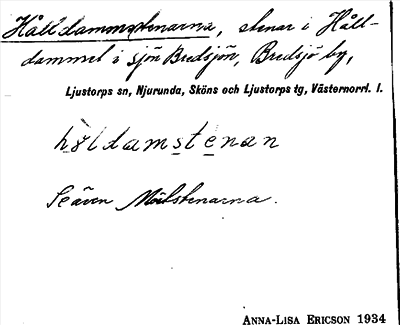 Hålldammstenarna, stenar i Håll-
dammet i sjön Bredsjön, Bredsjö by,
Ljustorps sn, Njurunda, Sköns och Ljustorps tg, Västernorrl. l.
hɔldamstenan
Se även Mölstenarna.
ANNA-LISA ERICSON 1934